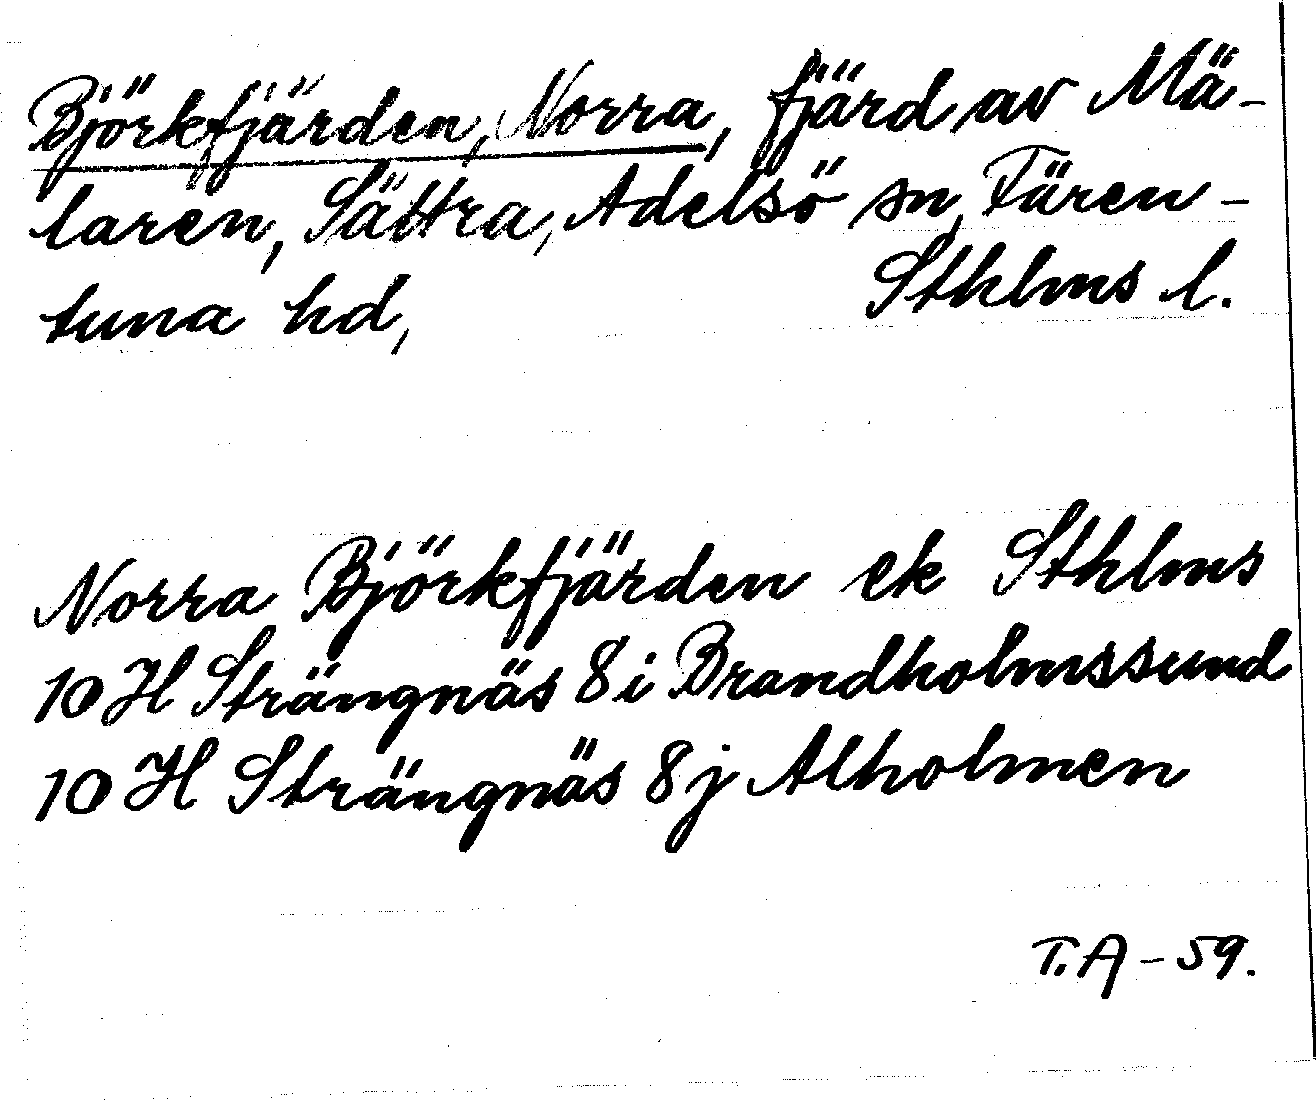 Björkfjärden, Norra, fjärd av Mä-
laren, Sättra, Adelsö sn, Fären-
tuna hd, Sthlms l.
Norra Björkfjärden ek Sthlms
10 H Strängnäs 8 i Brandholmssund
10 H Strängnäs 8 j Alholmen
T.A - 59.